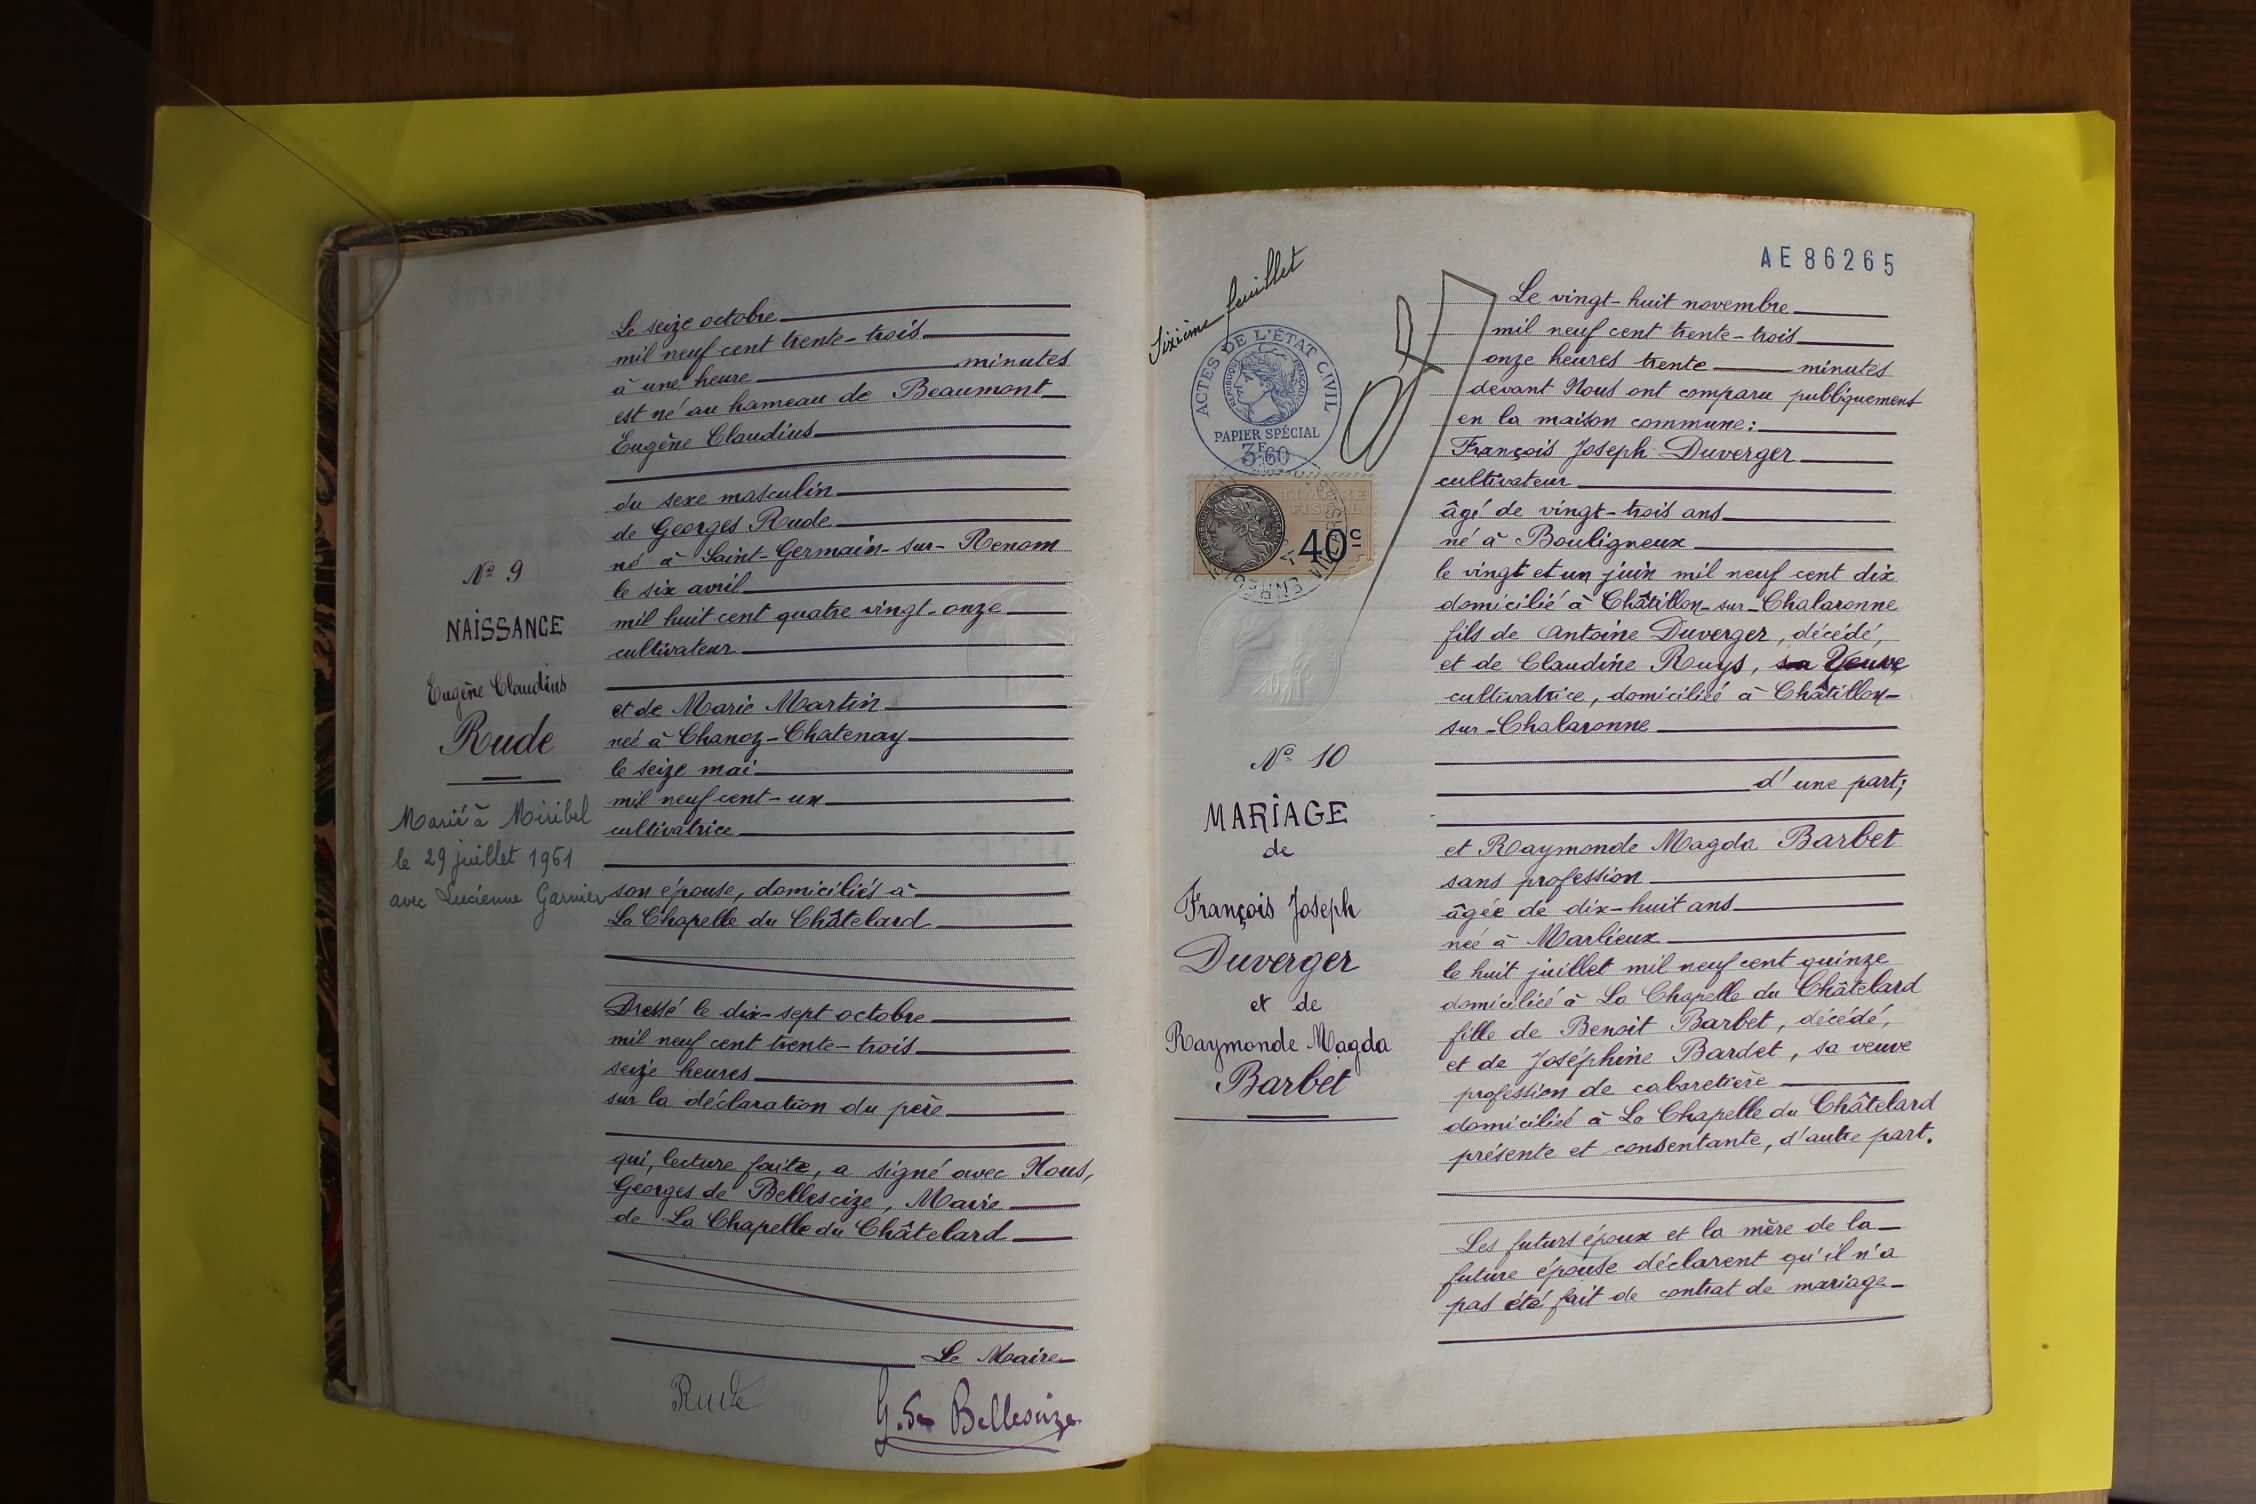 Le seize octobre
mil neuf cent trente-trois
à une heure minutes
est né au hameau de Beaumont
Eugène Claudius
du sexe masculin
de Georges Rude
né à Saint-Germain-sur-Renom
le six avril
mil huit cent quatre vingt-onze
cultivateur
et de Marie Martin
née à Chanoz-Chatenay
le seize mai
mil neuf cent-un
cultivatrice
son épouse, domiciliés à
La Chapelle du Châtelard
Dressé le dix-sept octobre
mil neuf cent trente-trois
seize heures
sur la déclaration du père
qui, lecture faite, a signé avec Nous,
Georges de Bellescize, Maire
de La Chapelle du Châtelard
Le Maire
Rude
G. de Bellescize
No 9
NAISSANCE
Eugène Claudius
Rude
Marié à Miribel
le 29 juillet 1961
avec Lucienne Garnier
Sixième feuillet
ACTES DE L'ÉTAT CIVIL
RÉPUBLIQUE FRANÇAISE
PAPIER SPÉCIAL
3F60
TIMBRE
FISCAL
40c
No 10
MARIAGE
de
François Joseph
Duverger
et de
Raymonde Magda
Barbet
AE 86265
Le vingt-huit novembre
mil neuf cent trente-trois
onze heures trente minutes
devant Nous ont comparu publiquement
en la maison commune:
François Joseph Duverger
cultivateur
âgé de vingt-trois ans
né à Bouligneux
le vingt et un juin mil neuf cent dix
domicilié à Châtillon-sur-Chalaronne
fils de Antoine Duverger, décédé,
et de Claudine Ruys, sa Veuve
cultivatrice, domiciliée à Châtillon-
sur-Chalaronne
d'une part;
et Raymonde Magda Barbet
sans profession
âgée de dix-huit ans
née à Marlieux
le huit juillet mil neuf cent quinze
domiciliée à La Chapelle du Châtelard
fille de Benoit Barbet, décédé,
et de Joséphine Bardet, sa veuve
profession de cabaretière
domiciliée à La Chapelle du Châtelard
présente et consentante, d'autre part.
Les futurs époux et la mère de la
future épouse déclarent qu'il n'a
pas été fait de contrat de mariage